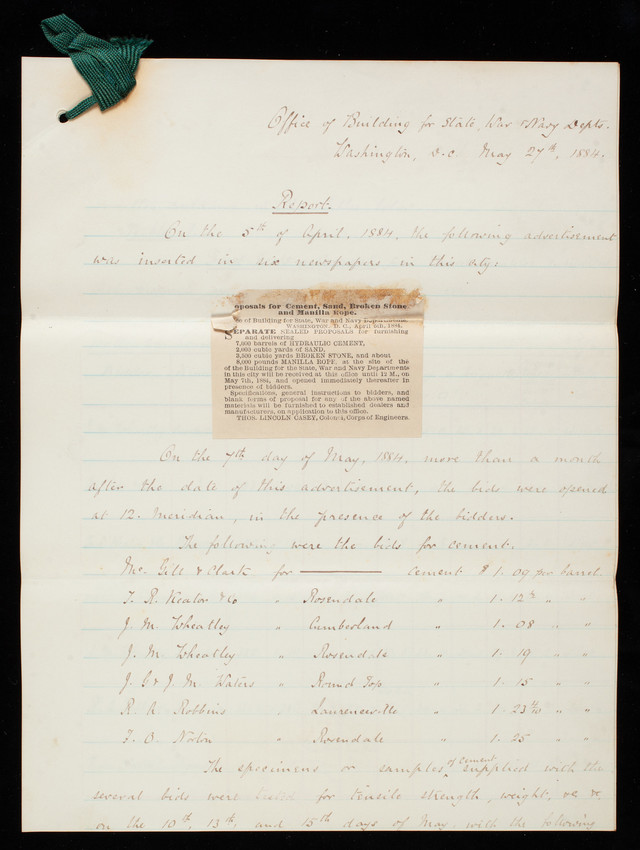 Office of Building for State, War & Navy Depts.
Washington, D.C. May 27th, 1884.
Report.
On the 5th of April, 1884, the following advertisement
was inserted in six newspapers in this city:
oposals for Cement, Sand, Broken Stone
and Manilla Rope.
e of Building for State, War and Navy Departments
WASHINGTON, D. C., April 5th, 1884.
SEPARATE SEALED PROPOSALS for furnishing
and delivering
7,500 barrels of HYDRAULIC CEMENT,
2,000 cubic yards of SAND,
3,500 cubic yards BROKEN STONE, and about
8,000 pounds MANILLA ROPE, at the site of the
of the Building for the State, War and Navy Departments
in this city will be received at this office until 12 M., on
May 7th, 1884, and opened immediately thereafter in
presence of bidders.
Specifications, general instructions to bidders, and
blank forms of proposal for any of the above named
materials will be furnished to established dealers and
manufacturers, on application to this office.
THOS. LINCOLN CASEY, Colonel, Corps of Engineers.
On the 7th day of May, 1884, more than a month
after the date of this advertisement, the bids were opened
at 12. Meridian, in the presence of the bidders.
The following were the bids for cement.
Mc. Gill & Clark for ——— cement $1.09 per barrel.
T. R. Keator & Co " Rosendale " 1.12½ " "
J. M. Wheatley " Cumberland " 1.08 " "
J. M. Wheatley " Rosendale " 1.19 " "
J. G. & J. M. Waters " Round Top " 1.15 " "
R. A. Robbins " Laurenceville " 1.23 4/10 " "
F. O. Norton " Rosendale " 1.25 " "
The specimens or samples of cement supplied with the
several bids were tested for tensile strength, weight, &c &c.
on the 10th, 13th, and 15th days of May, with the following